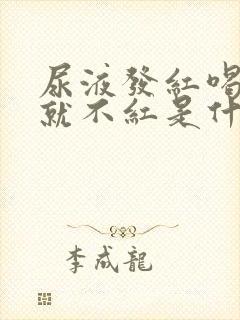 尿液發紅喝
就不紅是什
李成龍